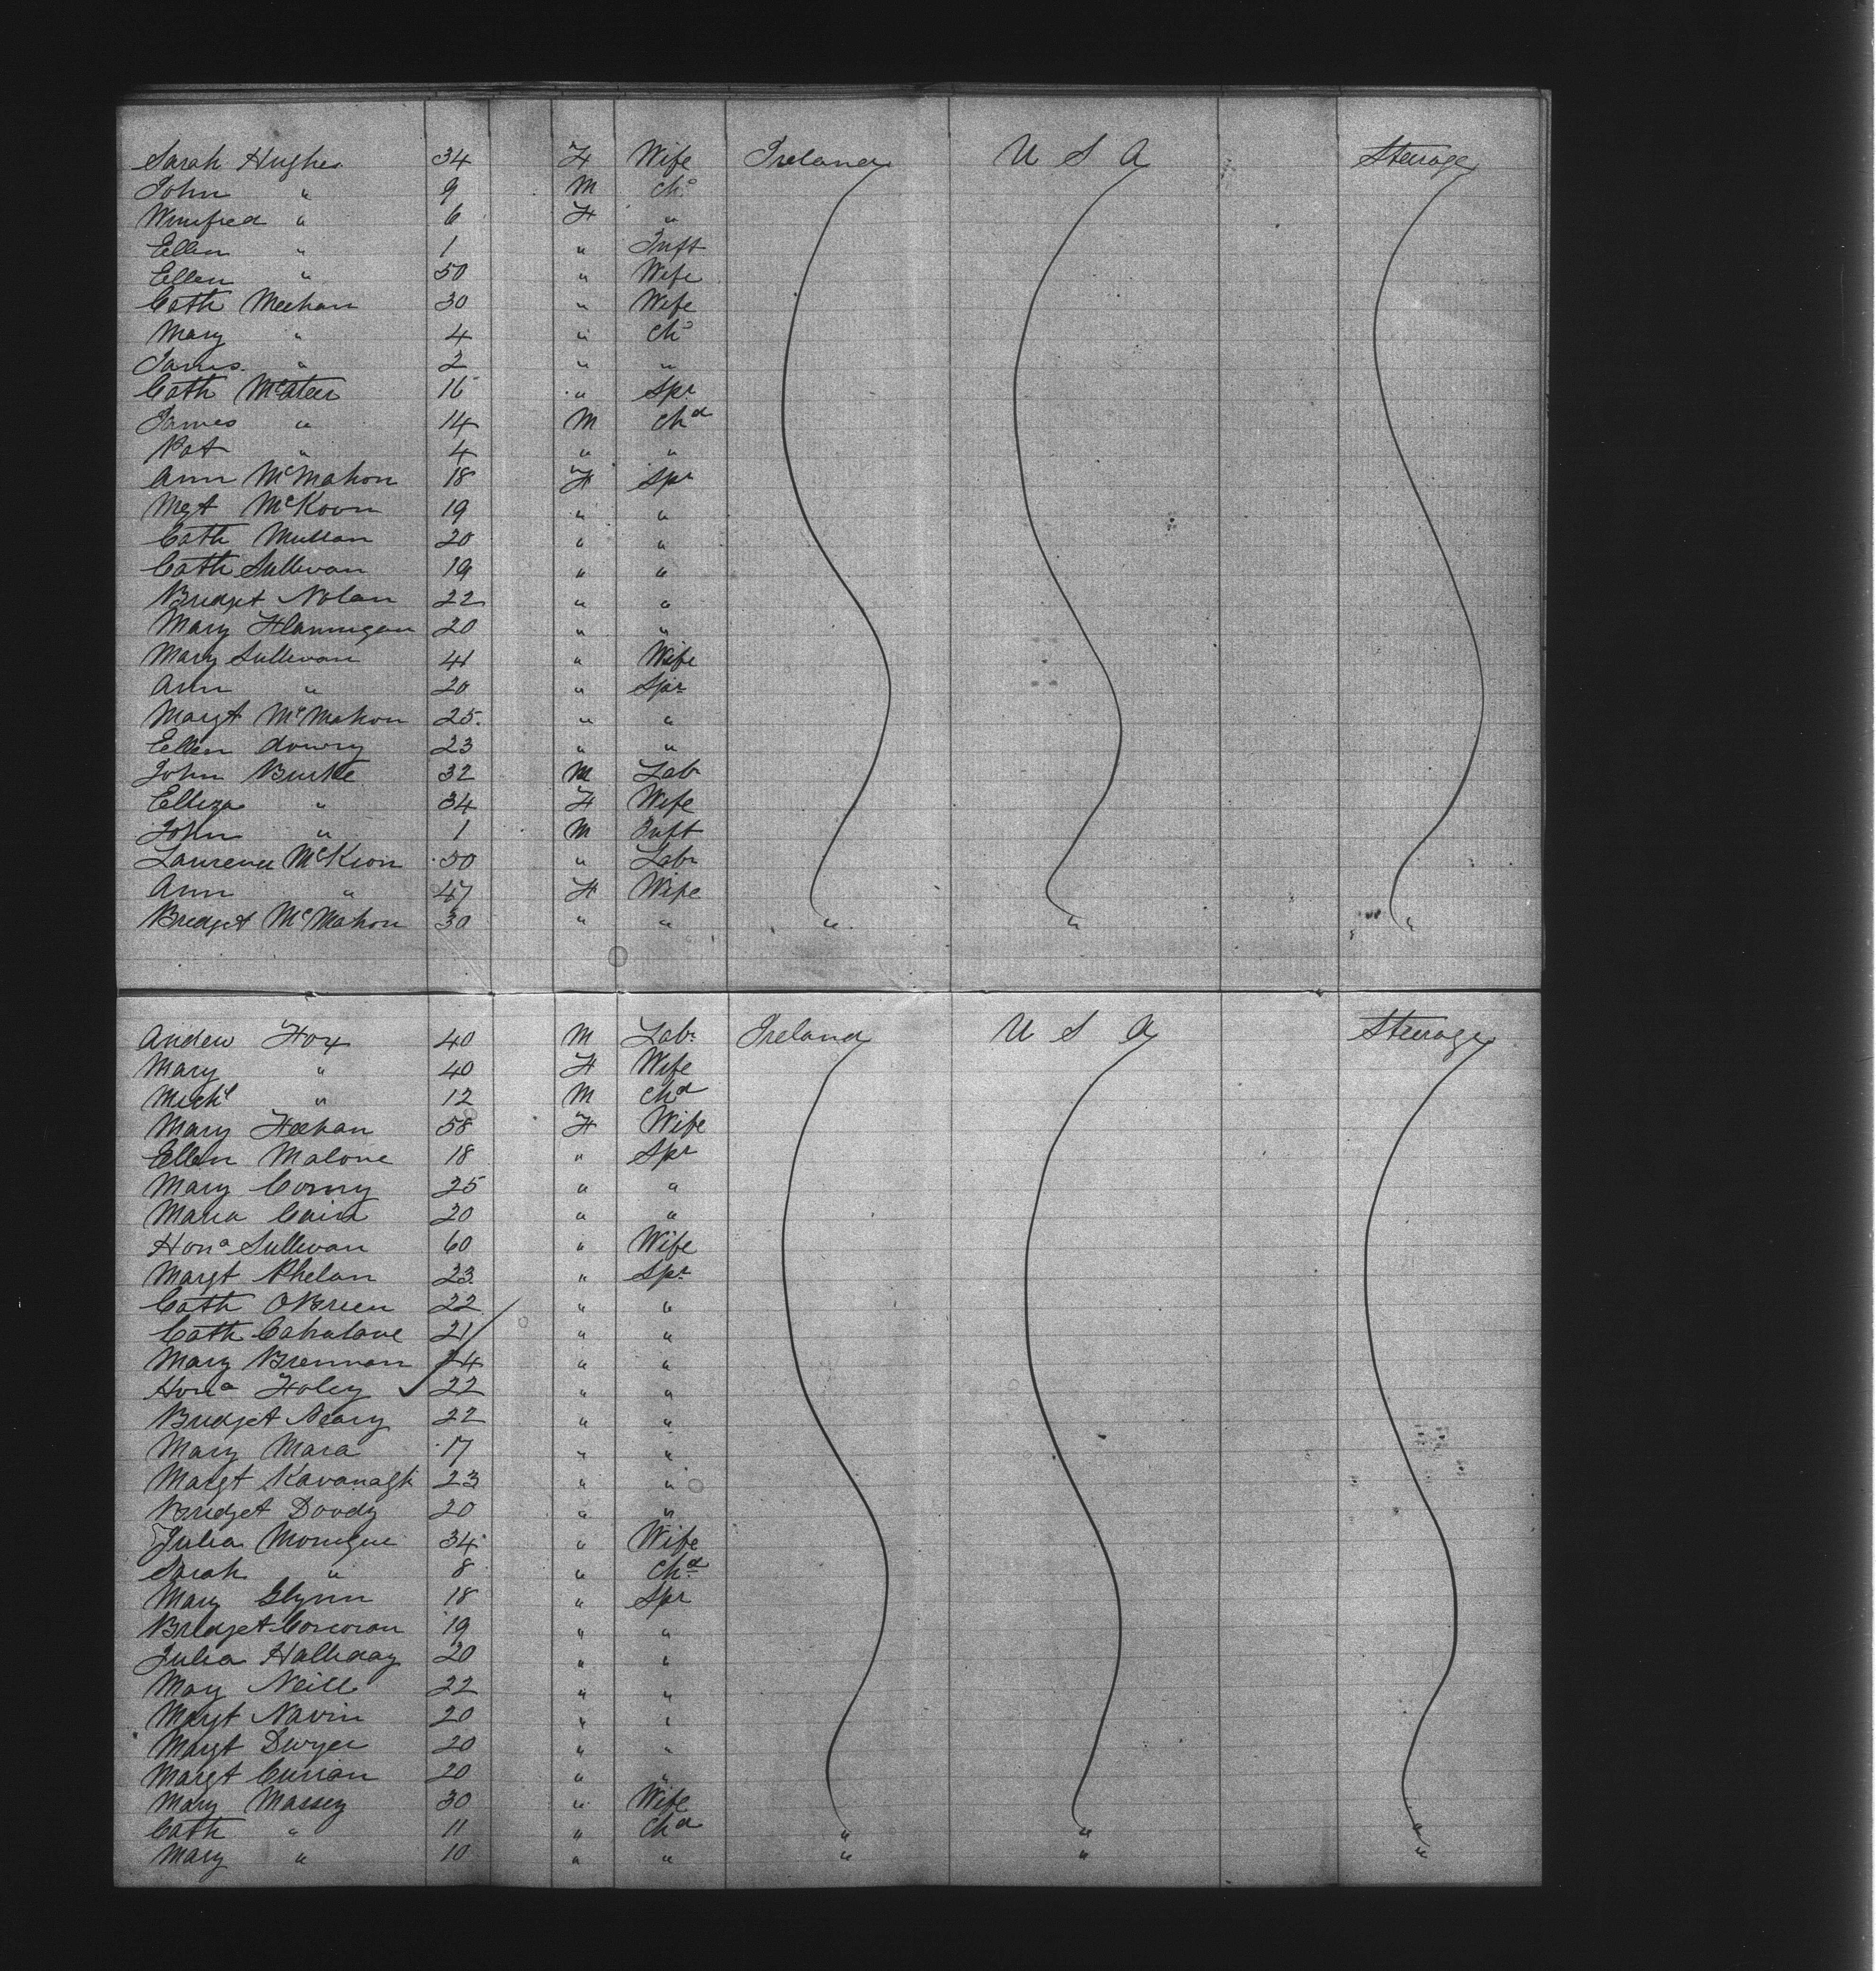 Sarah Hughes 34 F Wife Ireland U S A Steerage
John " 9 M Chd
Winifred " 6 F "
Ellen " 1 " Inft
Ellen " 50 " Wife
Cath Meehan 30 " Wife
Mary " 4 " Chd
James " 2 " "
Cath McAteer 16 " Spr
James " 14 M Chd
Pat " 4 " "
Ann McMahon 18 F Spr
Mgt McKoun 19 " "
Cath Mullan 20 " "
Cath Sullivan 19 " "
Bridget Nolan 22 " "
Mary Flannigan 20 " "
Mary Sullivan 41 " Wife
Ann " 20 " Spr
Margt McMahon 25 " "
Ellen dowry 23 " "
John Burke 32 M Labr
Elliza " 34 F Wife
John " 1 M Inft
Laurence McKeon 50 " Labr
Ann " 47 F Wife
Bridget McMahon 30 " " " " "
Andew Fox 40 M Labr Ireland U S A Steerage
Mary " 40 F Wife
Michl " 12 M Chd
Mary Feehan 58 F Wife
Ellen Malone 18 " Spr
Mary Corny 25 " "
Maria Cain 20 " "
Hona Sullivan 60 " Wife
Margt Phelan 23 " Spr
Cath OBrien 22 " "
Cath Cahalane 21 " "
Mary Brennan 24 " "
Hona Foley 22 " "
Bridget Neary 22 " "
Mary Mara 17 " "
Margt Kavanagh 23 " "
Bridget Doody 20 " "
Julia Monigui 34 " Wife
Sarah " 8 " Chd
Mary Glynn 18 " Spr
Bridget Corcoran 19 " "
Julia Halliday 20 " "
May Neill 22 " "
Margt Navin 20 " "
Margt Dwyer 20 " "
Margt Curran 20 " "
Mary Massey 30 " Wife
Cath " 11 " Chd " " "
Mary " 10 " " " " "